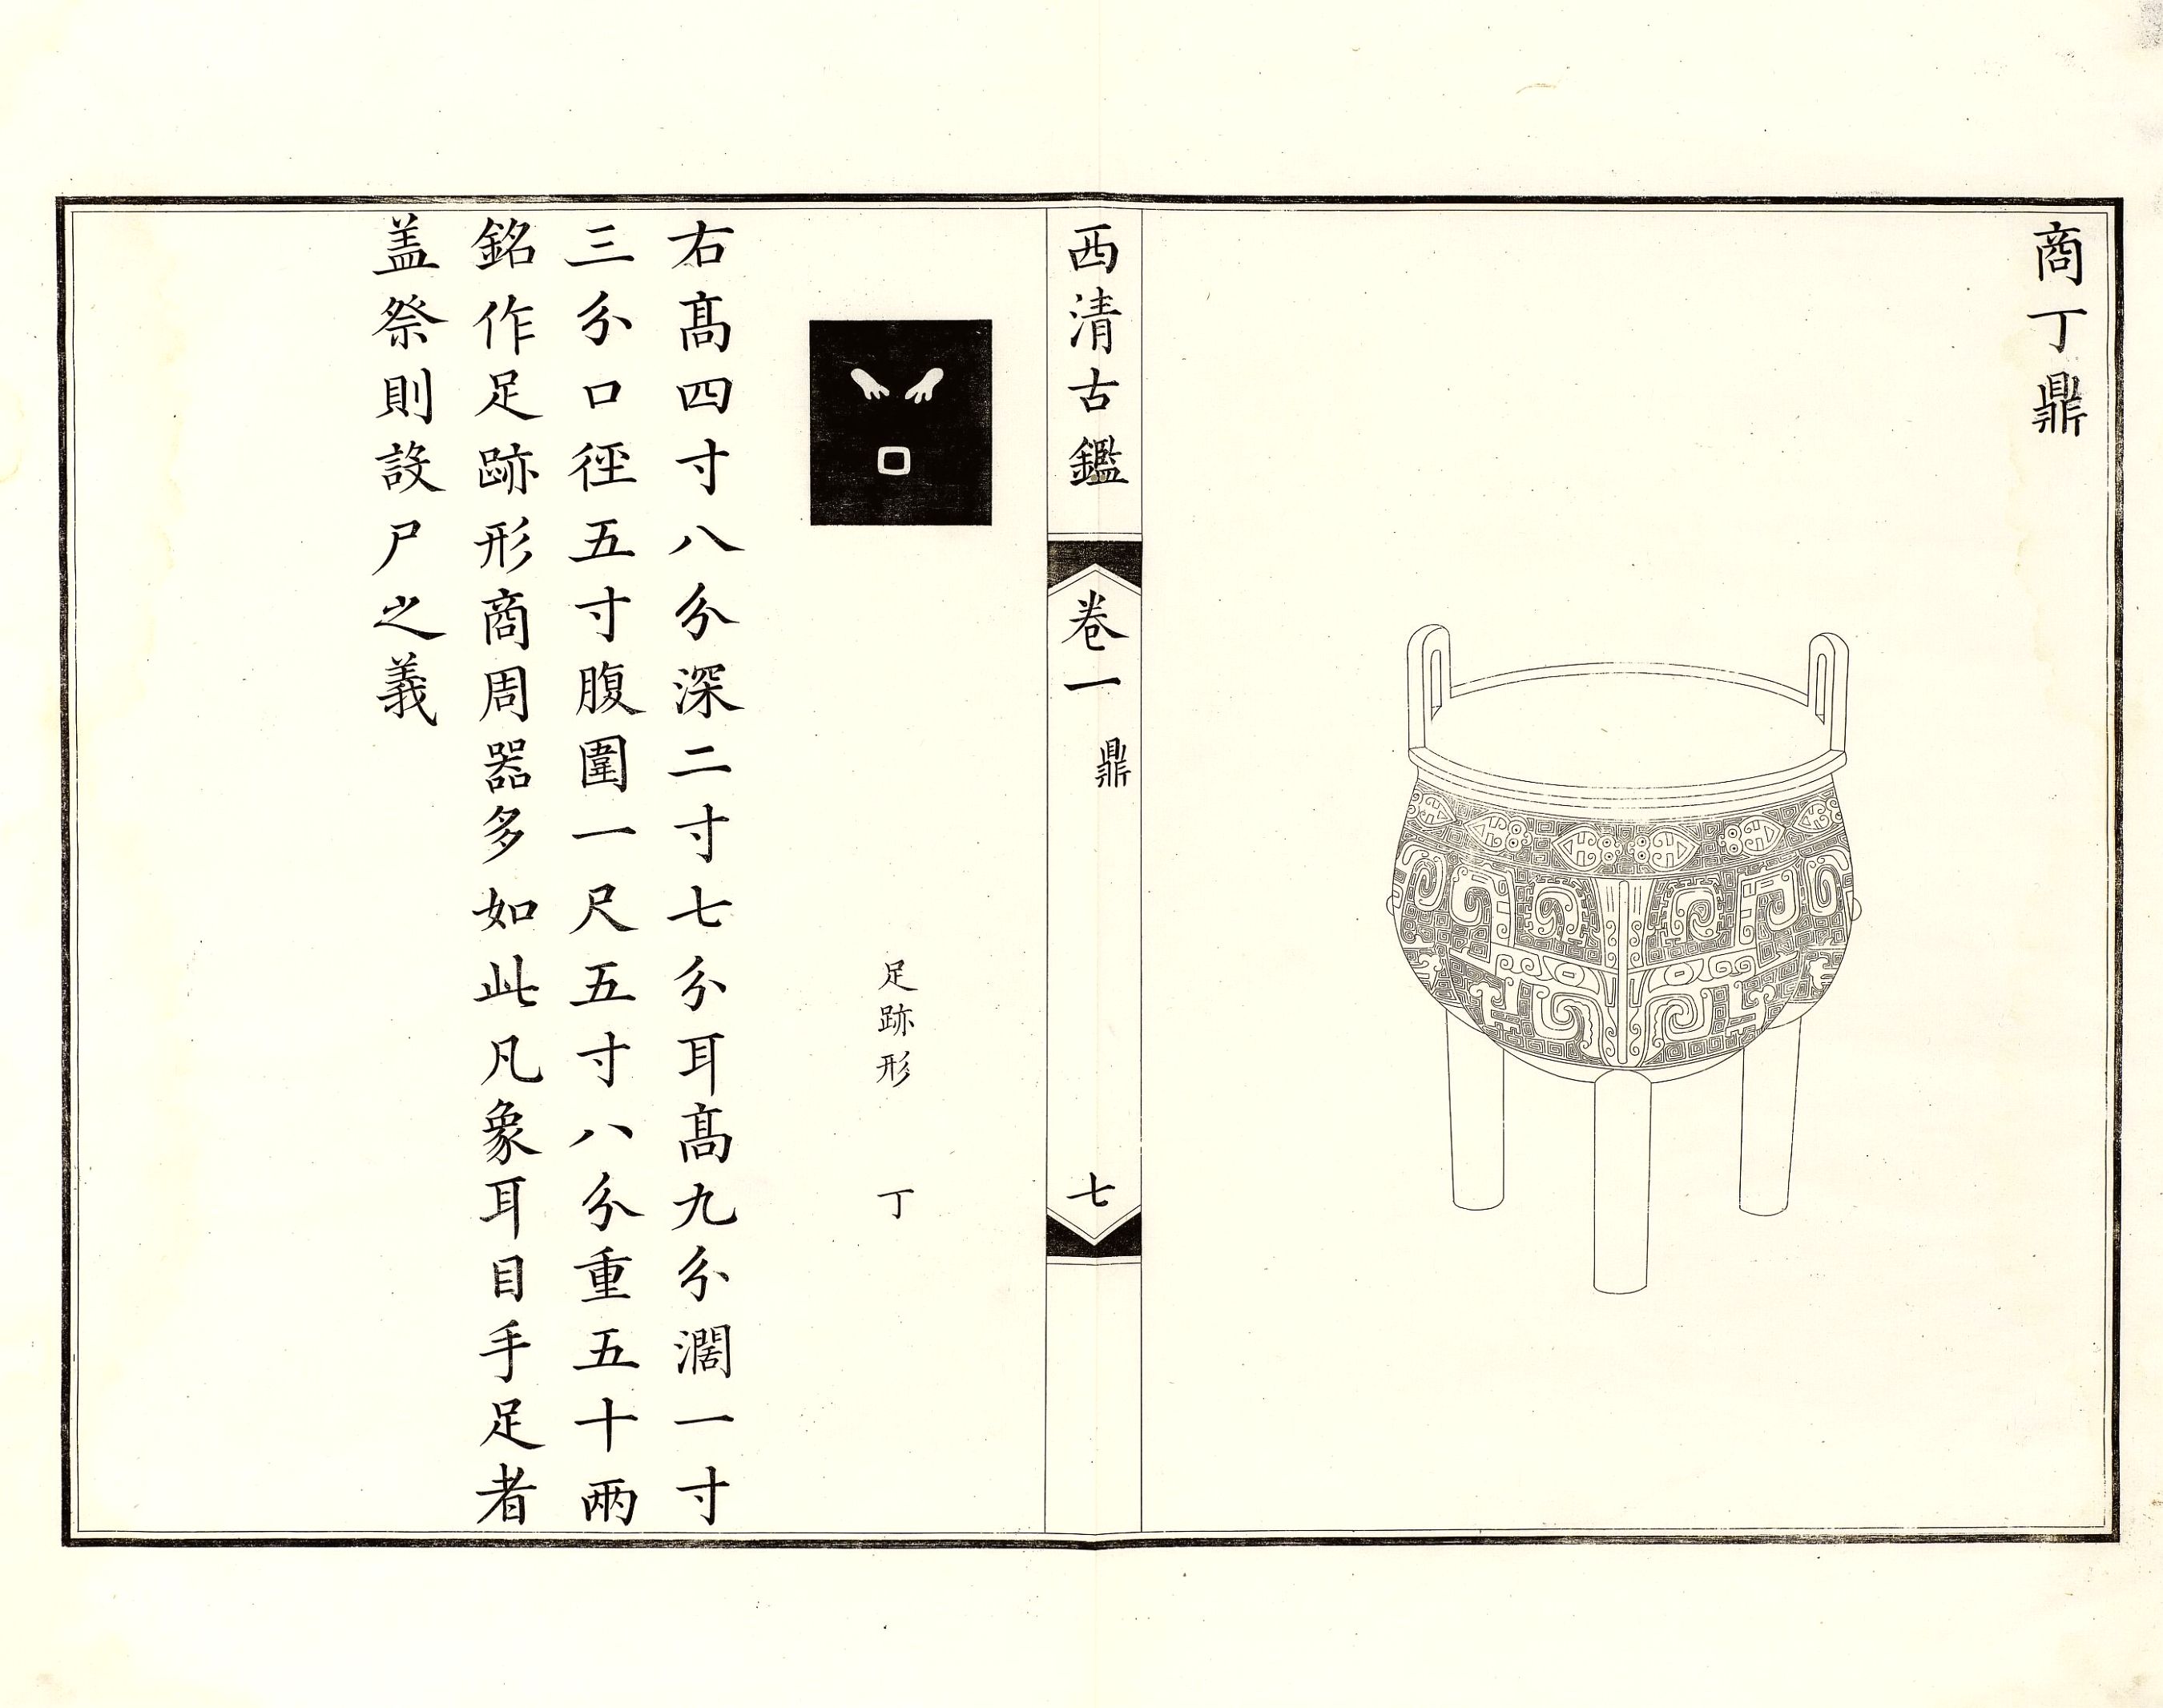 商丁鼎
西清古鑑
卷一 鼎
七
足跡形 丁
右髙四寸八分深二寸七分耳髙九分濶一寸
三分口徑五寸腹圍一尺五寸八分重五十兩
銘作足跡形商周器多如此凡象耳目手足者
盖祭則設尸之義